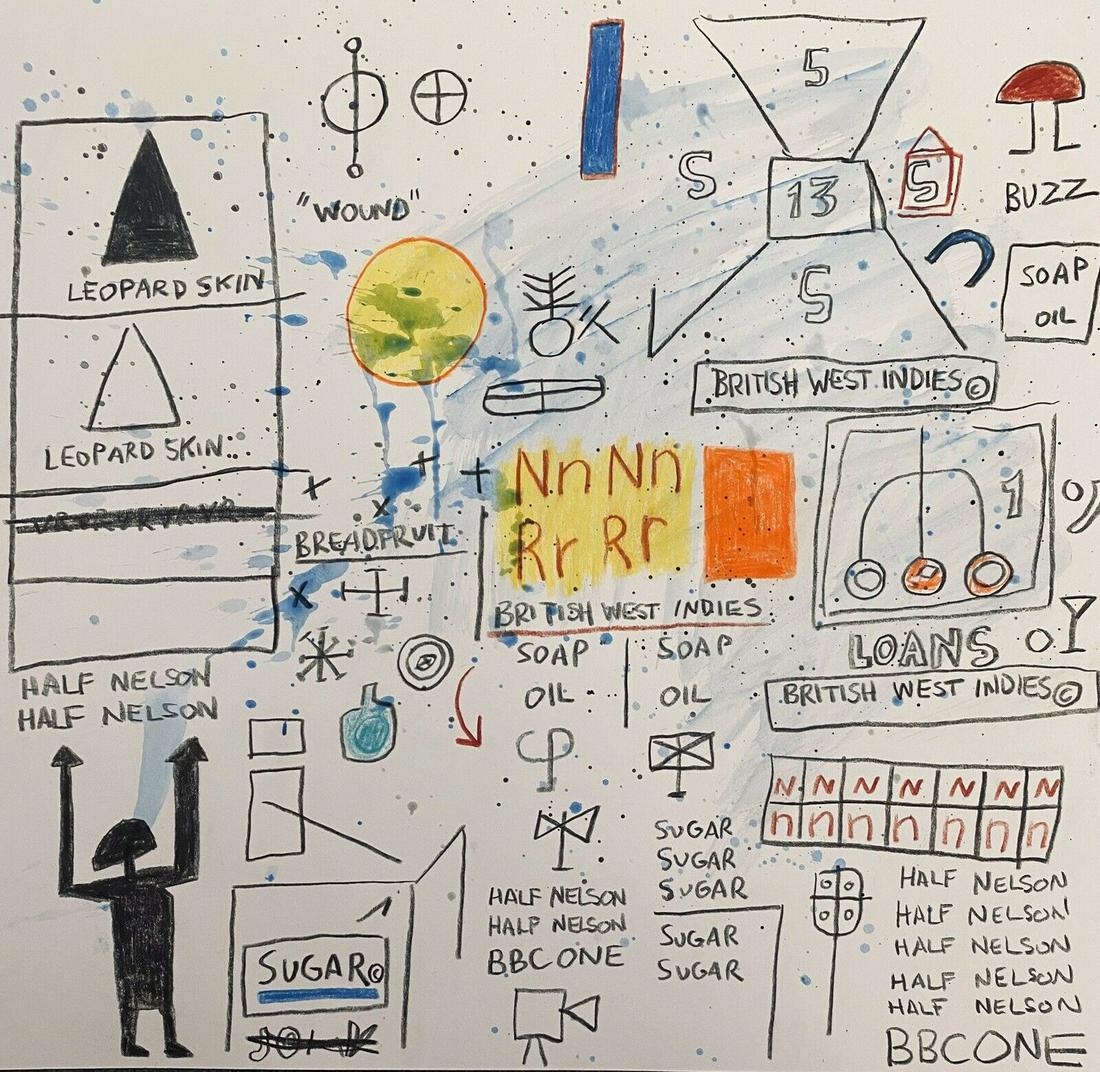 5
S
13
S
5
BUZZ
"WOUND"
SOAP
OIL
LEOPARD SKIN
LEOPARD SKIN
BRITISH WEST INDIES©
Nn Nn
Rr Rr
1
BREADFRUIT
BRITISH WEST INDIES
SOAP SOAP
OIL OIL
LOANS
BRITISH WEST INDIES©
HALF NELSON
HALF NELSON
N N N N N N N
n n n n n n n
SUGAR
SUGAR
SUGAR
SUGAR
SUGAR
HALF NELSON
HALF NELSON
BBC ONE
SUGAR©
HALF NELSON
HALF NELSON
HALF NELSON
HALF NELSON
HALF NELSON
BBC ONE